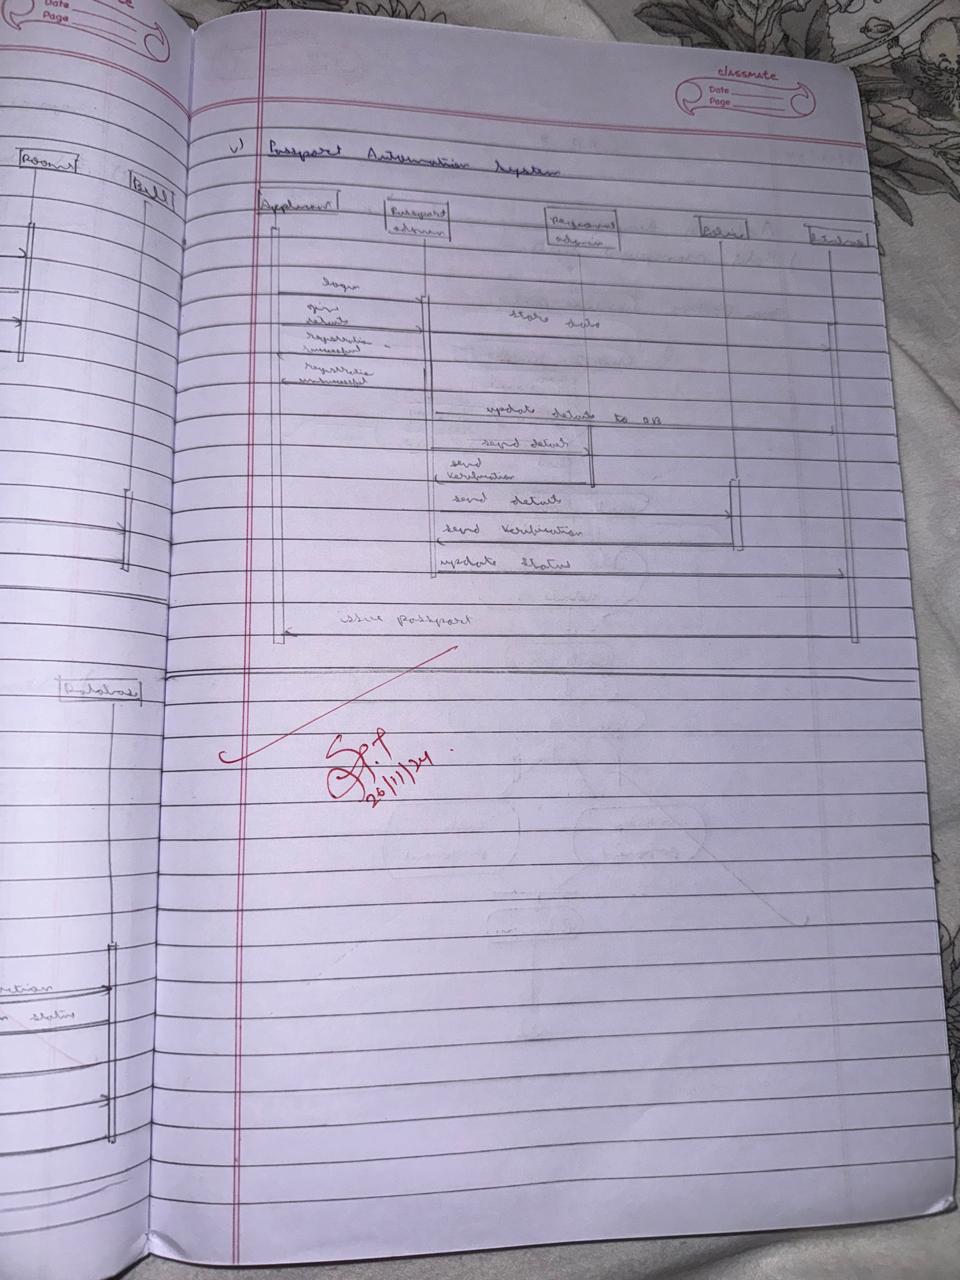 Date
Page
Rooms
Bill
Database
classmate
Date
Page
v) Passport Automation System
Applicant
Passport
admin
Regional
admin
Police
Database
login
give
details
store data
registration
successful
registration
unsuccessful
update details to DB
send details
send
verification
send details
send verification
update status
issue passport
26/11/24
status